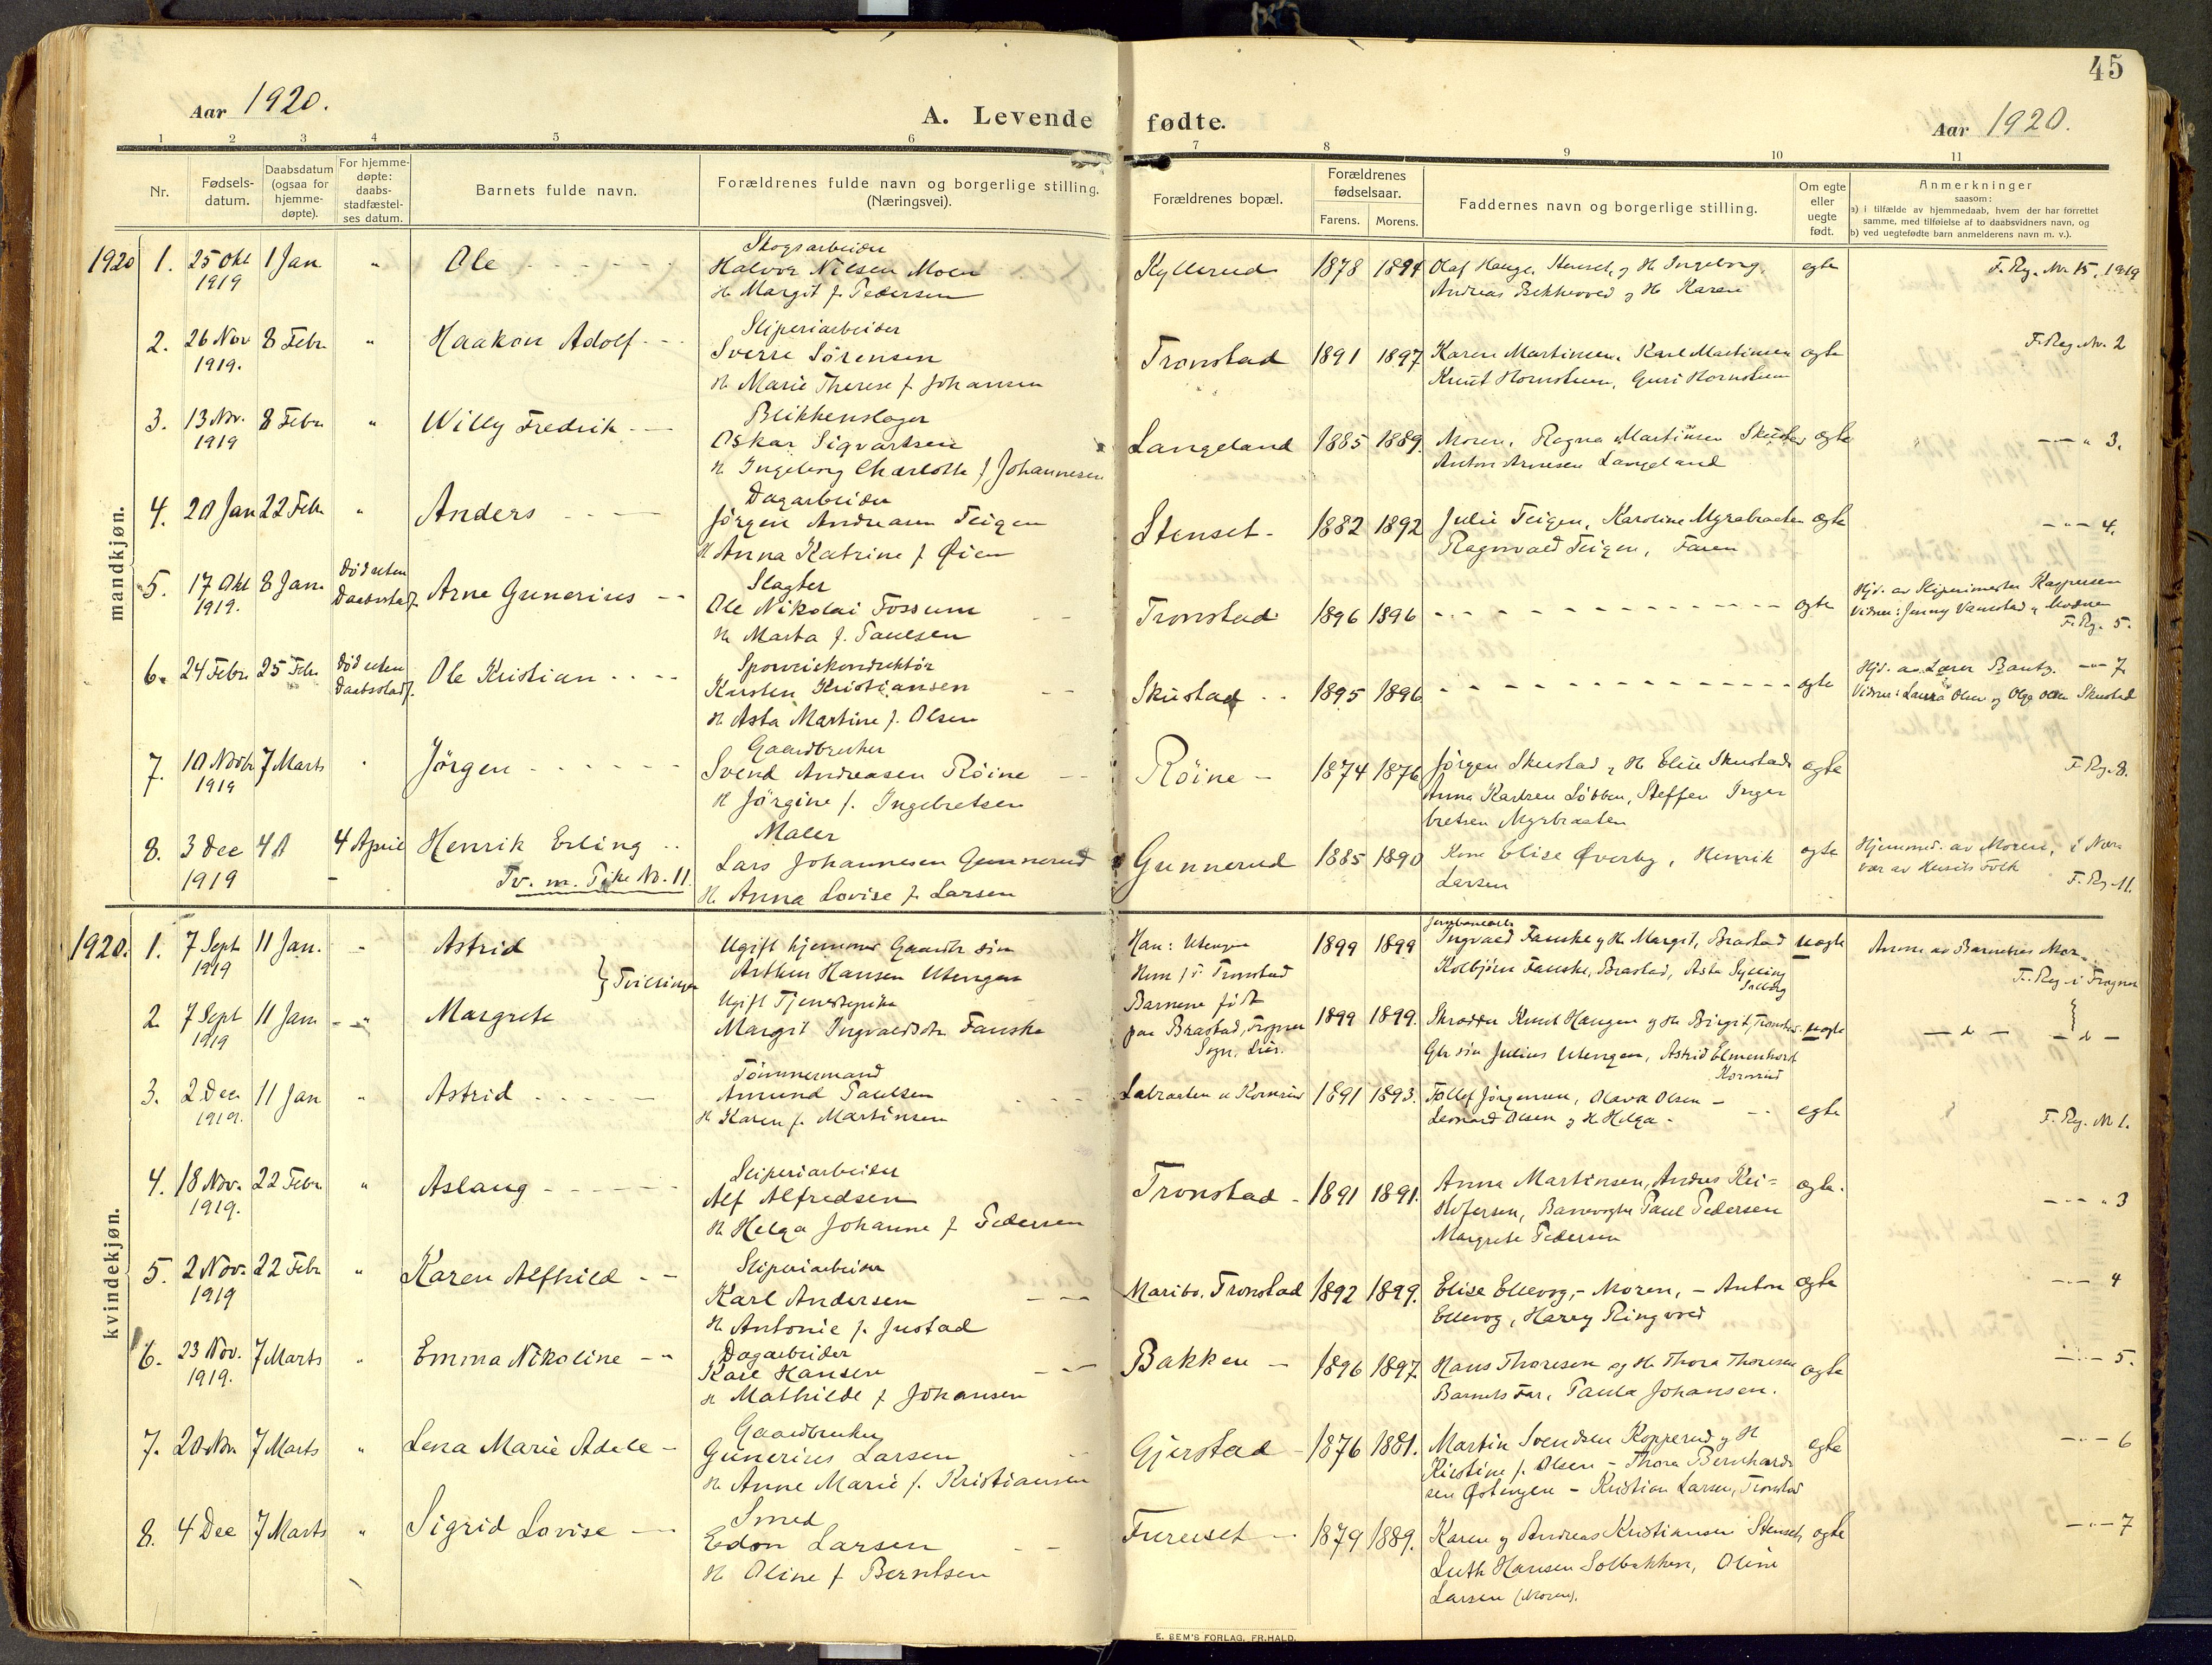 45
Aar 1920.
A. Levende fødte.
Aar 1920.
1 2 3 4 5 6 7 8 9 10 11
Nr.
Fødsels-
datum.
Daabsdatum
(ogsaa for
hjemme-
døpte).
For hjemme-
døpte:
daabs-
stadfæstel-
ses datum.
Barnets fulde navn.
Forældrenes fulde navn og borgerlige stilling.
(Næringsvei).
Forældrenes bopæl.
Forældrenes
fødselsaar.
Farens. Morens.
Faddernes navn og borgerlige stilling.
Om egte
eller
uegte
født.
Anmerkninger
saasom:
a) i tilfælde av hjemmedaab, hvem der har forrettet
samme, med tilføielse af to daabsvidners navn, og
b) ved uegtefødte barn anmelderens navn m. v.).
mandkjøn.
1920 1. 25 Okt 1 Jan " Ole
1919
Skogsarbeider
Halvor Nilsen Moen
H Margit f. Pedersen
Kyllerud 1878 1894
Olaf Hauge, Stenset, og H Ingeborg,
Andreas Bekkevold og H Karen
egte
F. Reg. Nr. 15, 1919
2. 26 Nov 8 Febr " Haakon Adolf
1919.
Sliperiarbeider
Sverre Sørensen
H Marie Therese f. Johansen
Tronstad 1891 1897
Karen Martinsen, Karl Martinsen
Knut Hornstuen, Guri Hornstuen
egte
F. Reg. Nr. 2
3. 13 Nov. 8 Febr " Willy Fredrik
1919
Blikkenslager
Oskar Sigvartsen
H Ingeborg Charlotte f Johannesen
Langeland 1885 1889.
Moren, Ragna Martinsen Skustad
Anton Arnesen Langeland
egte
—"— " 3.
4. 20 Jan 22 Febr " Anders
Dagarbeider
Jørgen Andreasen Teigen
H Anna Katrine f. Øien
Stenset - 1882 1892
Julie Teigen, Karoline Myrabraaten
Ragnvald Teigen, Faren
egte
—"— 4.
5. 17 Okt 8 Jan. Død uten Arne Gunerius
1919. Daabsstadf.
Slagter
Ole Nikolai Fossum
H Marta f. Paulsen
Tronstad 1896 1896
egte
Hjd. av Slipermester Kaspersen
Vidner: Jenny Vamstad og Moderen
F. Reg. 5.
6. 24 Febr. 25 Febr Død uten Ole Kristian
Daabsstadf.
Sporveiskonduktør
Karsten Kristiansen
H Asta Martine f. Olsen
Skustad 1895 1896
egte
Hjd. av Lærer Bautz. —"— 7.
Vidner: Laura Olsen og Olga Olsen Skustad
7. 10 Novbr 7 Marts " Jørgen
1919
Gaardbruker
Svend Andreasen Röine
H Jörgine f. Ingebretsen
Röine - 1874 1876
Jørgen Skustad og H Elise Skustad
Anna Karlsen Löbben, Steffen Inge-
bretsen Myrbraaten
egte
F. Reg. 8.
8. 3 Dec 4 A 4 April Henrik Erling
1919
Tv. m. Pike No. 11.
Maler
Lars Johannesen Gunnerud
H Anna Lovise f. Larsen
Gunnerud 1885 1890
Kone Elise Øverby, Henrik
Larsen
egte
Hjemmed. av Moren, i Nær
vær av Husets Folk
F. Reg. 11.
kvindekjøn.
1920. 1. 7 Sept 11 Jan. - Astrid
1919
} Tvillinger
Ugift hjemmev. Gaardbr. søn
Arthur Hansen Utengen
Han: Utengen
Hun f i Tronstad
1899 1899
Ingvald Fauske og H Margit, Brastad
Kolbjørn Fauske, Brastad, Asta Sylling
uegte
Anm av Barnets Mor.
F. Reg i Frogner
2. 7 Sept 11 Jan - " Margrete
1919
Ugift Tjenestepike
Margit Ingvaldsdtr. Fauske
Barnene født
paa Brastad, Frogner
Sogn. Lier.
1899 1899.
Skrædder Knut Haugen og H Birgit, Tronstad
Gbr søn Julius Utengen, Astrid Elmenhorst
Kornrud
uegte
— " — — " —
3. 2 Dec 11 Jan " Astrid
1919.
Tömmermand
Amund Paulsen
H Karen f. Martinsen
Labraaten u Kornrud 1891 1893.
Tollef Jörgensen, Olava Olsen -
Leonard Olsen og H Helga -
egte
F. Reg. Nr 1.
4. 18 Nov. 22 Febr " Aslaug
1919.
Sliperiarbeider
Alf Alfredsen
H Helga Johanne f Pedersen
Tronstad - 1891 1891.
Anna Martinsen, Andres Kri=
stofersen, Banevogter Paul Pedersen
Margrete Pedersen
egte.
—"— " 3
5. 2 Nov. 22 Febr " Karen Alfhild
1919
Sliperiarbeider
Karl Andersen
H Antonie f. Justad
Maribo. Tronstad 1892 1899.
Elise Ellevog, - Moren, - Anton
Ellevog, Harry Ringvold
egte
—"— 4
6. 23 Nov. 7 Marts " Emma Nikoline
1919.
Dagarbeider
Karl Hansen
H Mathilde f Johansen
Bakken - 1896 1897
Hans Thoresen og H Thora Thoresen
Barnets Far, Paula Johansen.
egte
—"— 5.
7. 20 Nov 7 Marts " Lena Marie Adele -
Gaardbruker
Gunerius Larsen
H Anne Marie f. Kristiansen
Gjerstad - 1876 1881.
Martin Svendsen Kopperud og H
Kirstine f. Olsen - Thora Bernhard-
sen Østengen - Kristian Larsen, Tronstad
egte
—"— 6
8. 4 Dec 7 Marts " Sigrid Lovise
Smed
Edon Larsen
H Oline f Berntsen
Fureuset 1879 1889.
Karen og Andreas Kristiansen Stenset,
Luth Hansen Solbakken, Oline
Larsen (Moren).
egte
—"— 7
E. SEM'S FORLAG, FR.HALD.